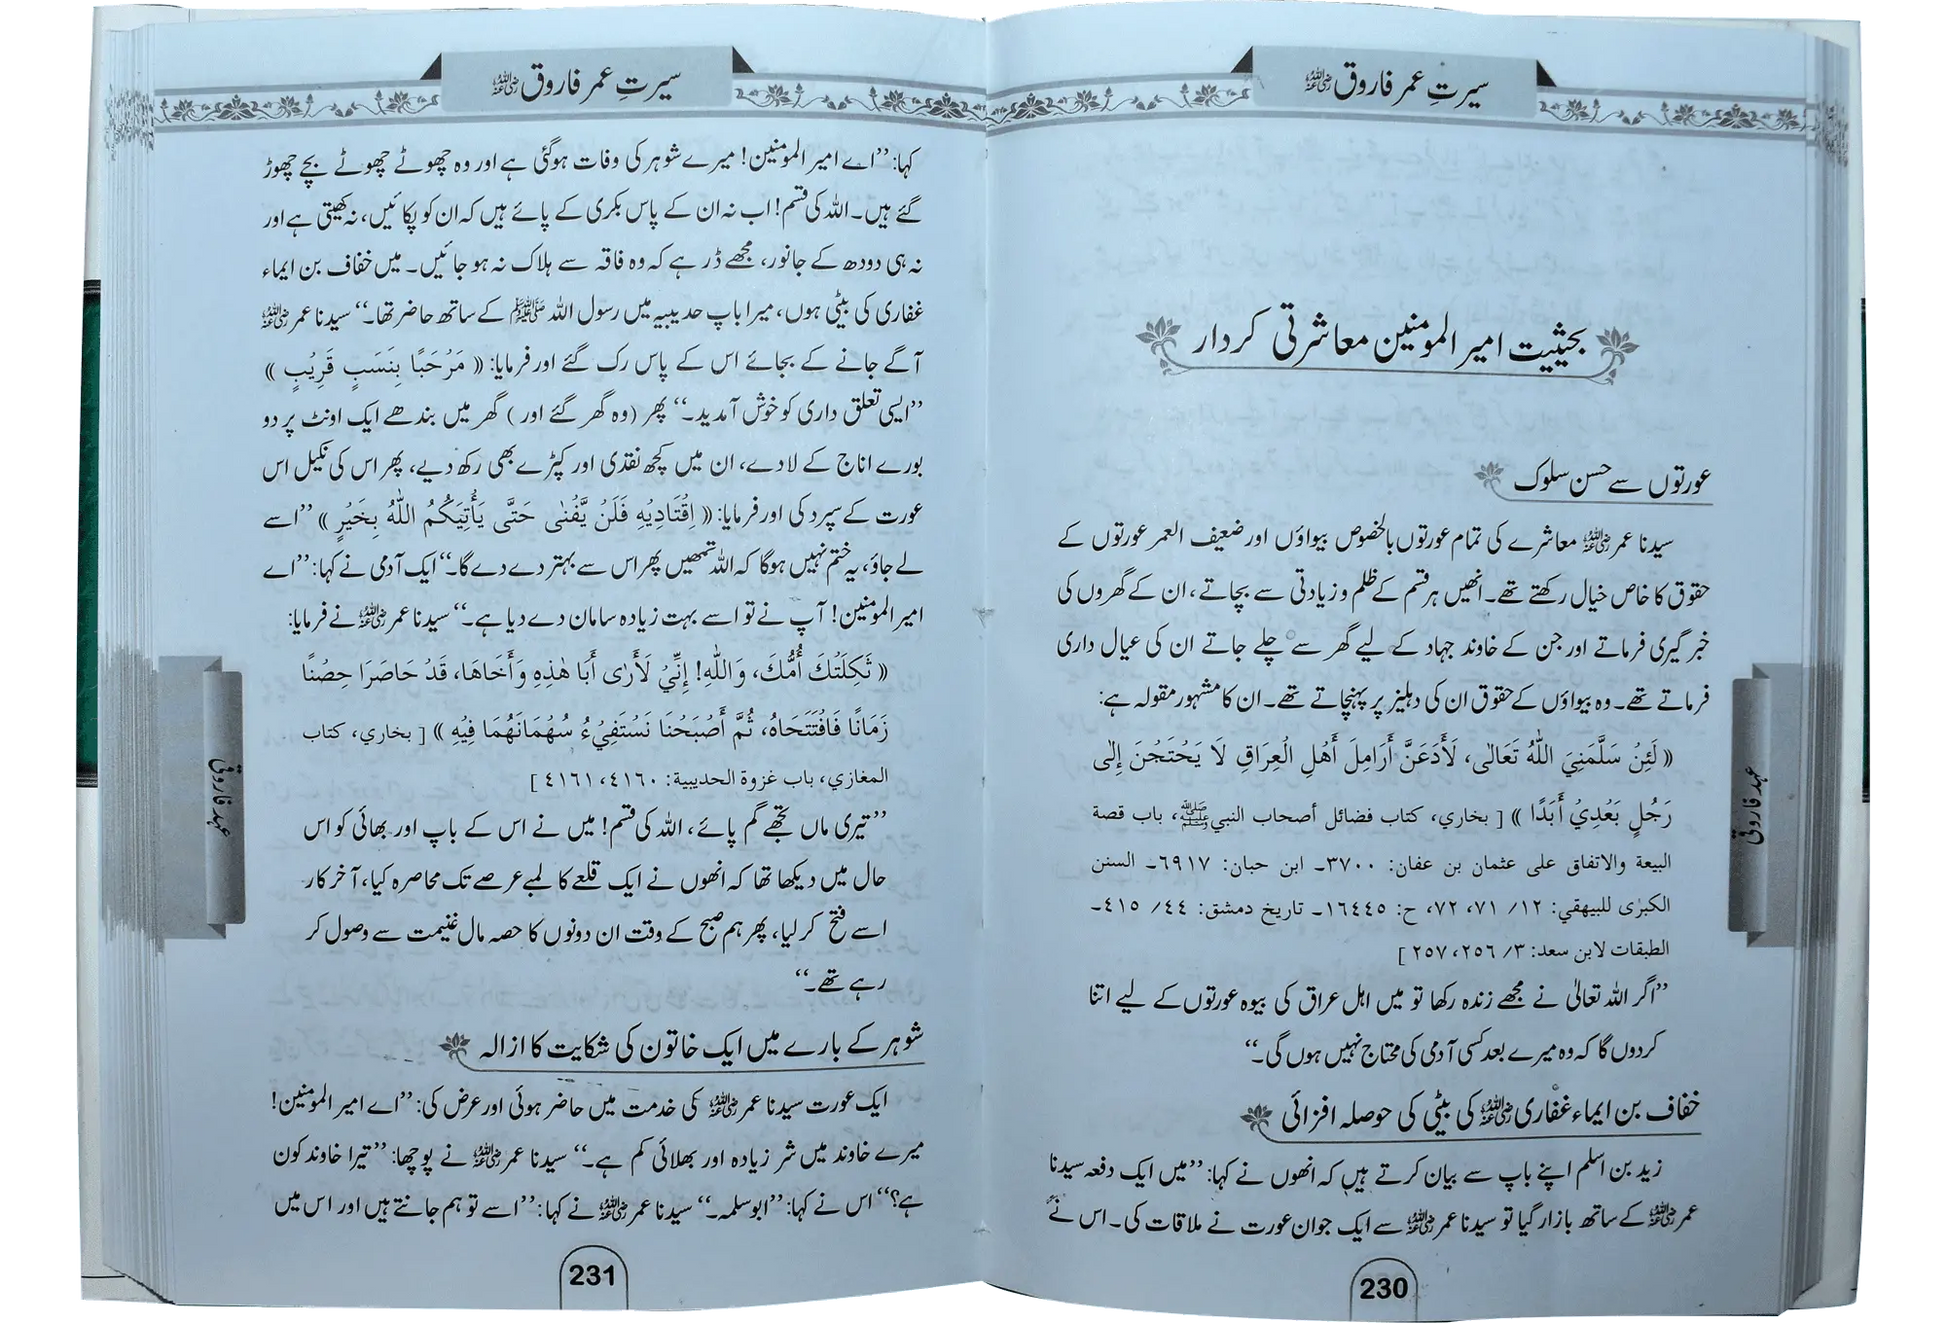 سیرتِ عمر فاروق رضی اللہ عنہ
بحیثیت امیر المومنین معاشرتی کردار
عورتوں سے حسن سلوک
سیدنا عمر رضی اللہ عنہ معاشرے کی تمام عورتوں بالخصوص بیواؤں اور ضعیف العمر عورتوں کے
حقوق کا خاص خیال رکھتے تھے۔ انھیں ہر قسم کے ظلم و زیادتی سے بچاتے، ان کے گھروں کی
خبر گیری فرماتے اور جن کے خاوند جہاد کے لیے گھر سے چلے جاتے ان کی عیال داری
فرماتے تھے۔ وہ بیواؤں کے حقوق ان کی دہلیز پر پہنچاتے تھے۔ ان کا مشہور مقولہ ہے:
« لَئِنْ سَلَّمَنِيَ اللّٰهُ تَعَالٰى، لَأَدَعَنَّ أَرَامِلَ أَهْلِ الْعِرَاقِ لَا يَحْتَجْنَ إِلٰى
رَجُلٍ بَعْدِيْ أَبَدًا » [ بخاري، كتاب فضائل أصحاب النبي ﷺ، باب قصة
البيعة والاتفاق على عثمان بن عفان: ٣٧٠٠۔ ابن حبان: ٦٩١٧۔ السنن
الكبرٰى للبيهقي: ١٢/ ٧١، ٧٢، ح: ١٦٤٤٥۔ تاريخ دمشق: ٤٤/ ٤١٥۔
الطبقات لابن سعد: ٣/ ٢٥٦، ٢٥٧ ]
”اگر اللہ تعالیٰ نے مجھے زندہ رکھا تو میں اہل عراق کی بیوہ عورتوں کے لیے اتنا
کردوں گا کہ وہ میرے بعد کسی آدمی کی محتاج نہیں ہوں گی۔“
خفاف بن ایماء غفاری رضی اللہ عنہ کی بیٹی کی حوصلہ افزائی
زید بن اسلم اپنے باپ سے بیان کرتے ہیں کہ انھوں نے کہا: ”میں ایک دفعہ سیدنا
عمر رضی اللہ عنہ کے ساتھ بازار گیا تو سیدنا عمر رضی اللہ عنہ سے ایک جوان عورت نے ملاقات کی۔ اس نے
230
عہد فاروقی
سیرتِ عمر فاروق رضی اللہ عنہ
کہا: ”اے امیر المومنین! میرے شوہر کی وفات ہوگئی ہے اور وہ چھوٹے چھوٹے بچے چھوڑ
گئے ہیں۔ اللہ کی قسم! اب نہ ان کے پاس بکری کے پائے ہیں کہ ان کو پکائیں، نہ کھیتی ہے اور
نہ ہی دودھ کے جانور، مجھے ڈر ہے کہ وہ فاقہ سے ہلاک نہ ہو جائیں۔ میں خفاف بن ایماء
غفاری کی بیٹی ہوں، میرا باپ حدیبیہ میں رسول اللہ ﷺ کے ساتھ حاضر تھا۔“ سیدنا عمر رضی اللہ عنہ
آگے جانے کے بجائے اس کے پاس رک گئے اور فرمایا: « مَرْحَبًا بِنَسَبٍ قَرِيْبٍ »
”ایسی تعلق داری کو خوش آمدید۔“ پھر (وہ گھر گئے اور) گھر میں بندھے ایک اونٹ پر دو
بورے اناج کے لادے، ان میں کچھ نقدی اور کپڑے بھی رکھ دیے، پھر اس کی نکیل اس
عورت کے سپرد کی اور فرمایا: « اِقْتَادِيْهِ فَلَنْ يَّفْنٰى حَتّٰى يَأْتِيَكُمُ اللّٰهُ بِخَيْرٍ » ”اسے
لے جاؤ، یہ ختم نہیں ہوگا کہ اللہ تمھیں پھر اس سے بہتر دے دے گا۔“ ایک آدمی نے کہا: ”اے
امیر المومنین! آپ نے تو اسے بہت زیادہ سامان دے دیا ہے۔“ سیدنا عمر رضی اللہ عنہ نے فرمایا:
« ثَكِلَتْكَ أُمُّكَ، وَاللّٰهِ! إِنِّيْ لَأَرٰى أَبَا هٰذِهِ وَأَخَاهَا، قَدْ حَاصَرَا حِصْنًا
زَمَانًا فَافْتَتَحَاهُ، ثُمَّ أَصْبَحْنَا نَسْتَفِيْءُ سُهْمَانَهُمَا فِيْهِ » [ بخاري، كتاب
المغازي، باب غزوة الحديبية: ٤١٦٠، ٤١٦١ ]
”تیری ماں تجھے گم پائے، اللہ کی قسم! میں نے اس کے باپ اور بھائی کو اس
حال میں دیکھا تھا کہ انھوں نے ایک قلعے کا لمبے عرصے تک محاصرہ کیا، آخر کار
اسے فتح کر لیا، پھر ہم صبح کے وقت ان دونوں کا حصہ مال غنیمت سے وصول کر
رہے تھے۔“
شوہر کے بارے میں ایک خاتون کی شکایت کا ازالہ
ایک عورت سیدنا عمر رضی اللہ عنہ کی خدمت میں حاضر ہوئی اور عرض کی: ”اے امیر المومنین!
میرے خاوند میں شر زیادہ اور بھلائی کم ہے۔“ سیدنا عمر رضی اللہ عنہ نے پوچھا: ”تیرا خاوند کون
ہے؟“ اس نے کہا: ”ابوسلمہ۔“ سیدنا عمر رضی اللہ عنہ نے کہا: ”اسے تو ہم جانتے ہیں اور اس میں
231
عہد فاروقی